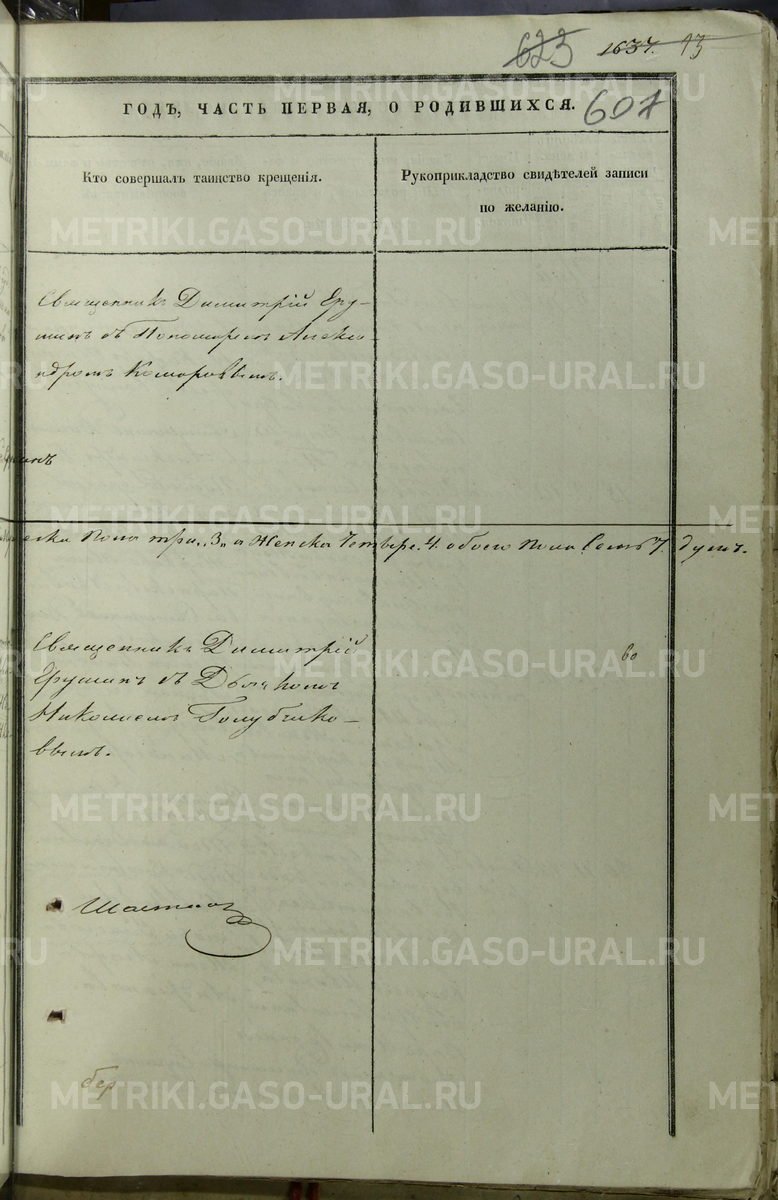 623 1637. 13
607
ГОДЪ, ЧАСТЬ ПЕРВАЯ, О РОДИВШИХСЯ.
Кто совершалъ таинство крещенія.
Рукоприкладство свидѣтелей записи
по желанію.
Священникъ Димитрій Еру-
шинъ съ Пономаремъ Алекса-
ндромъ Комаровымъ.
Пола три „3„ а Женска Четверо. 4. обоего Пола Семь 7. душъ.
Священникъ Димитрій
Ерушинъ съ Дьякономъ
Николаемъ Голубчико-
вымъ.
во
METRIKI.GASO-URAL.RU